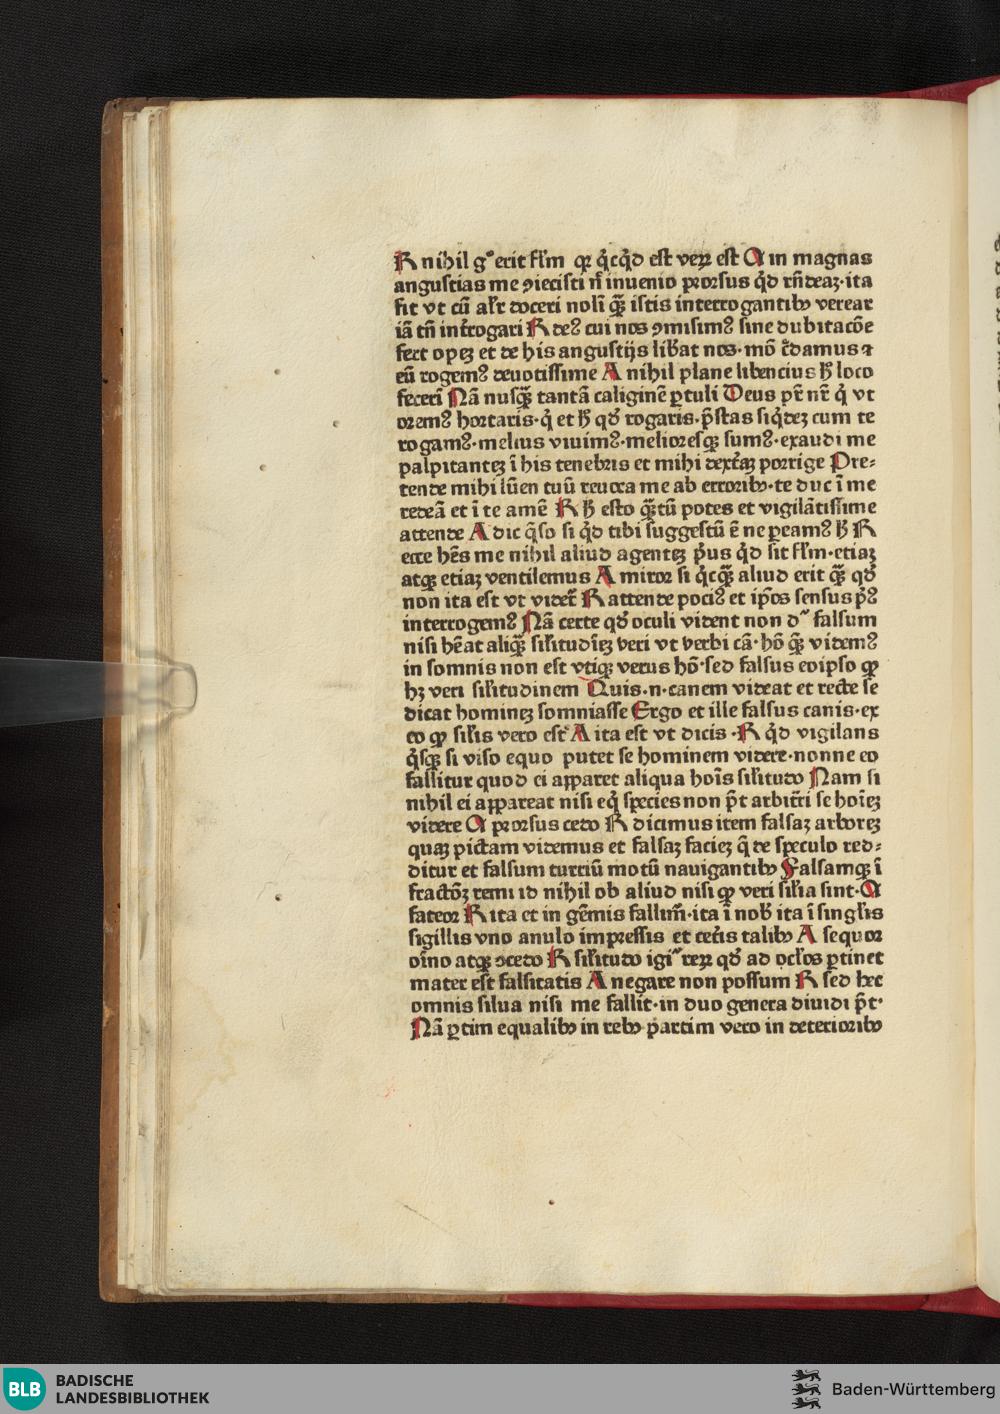 R nihil g° erit fľm qꝛ q̇cq̇d est veꝝ est A in magnas
angustias me ꝯiecisti nͥ inuenio prorsus q̇d rñdeaꝫ·ita
fit vt cū alr̓ doceri noli q̄ꝫ istis interrogantibꝫ verear
iā tñ int̓rogari R deꝰ cui nos ꝯmisimꝰ sine dubitacōe
fert opeꝫ et de his angustijs lib̓at nos·mō c̓damus ⁊
eū rogemꝰ deuotissime A nihil plane libencius ħ loco
fecerī Nā nusq̄ꝫ tantā caliginē ꝑtuli Deus pr̄ nr̄ q̇ vt
oremꝰ hortaris·q̇ et ħ qđ rogaris·p̄stas siq̇deꝫ cum te
rogamꝰ·melius viuimꝰ·melioresqꝫ sumꝰ·exaudi me
palpitanteꝫ ī his tenebris et mihi dext̓aꝫ porrige Pre⸗
tende mihi lūen tuū reuoca me ab erroribꝫ·te duc ī me
redeā et ī te amē R ħ esto q̄ꝫtū potes et vigilātissime
attende A dic q̄so si q̇d tibi suggestū ē ne ꝑeamꝰ ħ R
ecce hēs me nihil aliud agenteꝫ pꝰus q̇d sit fľm·etiaꝫ
atqꝫ etiaꝫ ventilemus A miror si q̇cq̄ꝫ aliud erit q̄ꝫ qđ
non ita est vt videt̄ R attende pociꝰ et ip̄os sensus pꝰ
interrogemꝰ Nā certe qđ oculi vident non dꝛ falsum
nisi hēat aliq̄ꝫ siľitudīeꝫ veri vt verbi cā·hō q̄ꝫ videmꝰ
in somnis non est vtiqꝫ verus hō·sed falsus eoipso ꝙ
hꝫ veri siľitudinem Quis·n·canem videat et recte se
dicat homineꝫ somniasse Ergo et ille falsus canis·ex
eo ꝙ siľis vero est A ita est vt dicis·R q̇d vigilans
q̇sqꝫ si viso equo putet se hominem videre·nonne eo
fallitur quod ei apparet aliqua hoīs siľitudo Nam si
nihil ei appareat nisi eq̇ species non p̄t arbit̓ri se hoīeꝫ
videre A prorsus cedo R dicimus item falsaꝫ arboreꝫ
quaꝫ pictam videmus et falsaꝫ facieꝫ q̄ de speculo red⸗
ditur et falsum turriū motū nauigantibꝫ Falsamqꝫ ī
fractōꝫ remi id nihil ob aliud nisi ꝙ veri siľia sint·A
fateor R ita et in gēmis fallim̄·ita ī nob̓ ita ī singľis
sigillis vno anulo impressis et cet̓is talibꝫ A sequor
oīno atqꝫ ꝯcedo R siľitudo igiꝛ reꝝ qđ ad ocľos ꝑtinet
mater est falsitatis A negare non possum R sed hec
omnis silua nisi me fallit·in duo genera diuidi p̄t·
Nā ꝑtim equalibꝫ in rebꝫ partim vero in deterioribꝫ
BLB
BADISCHE
LANDESBIBLIOTHEK
Baden-Württemberg